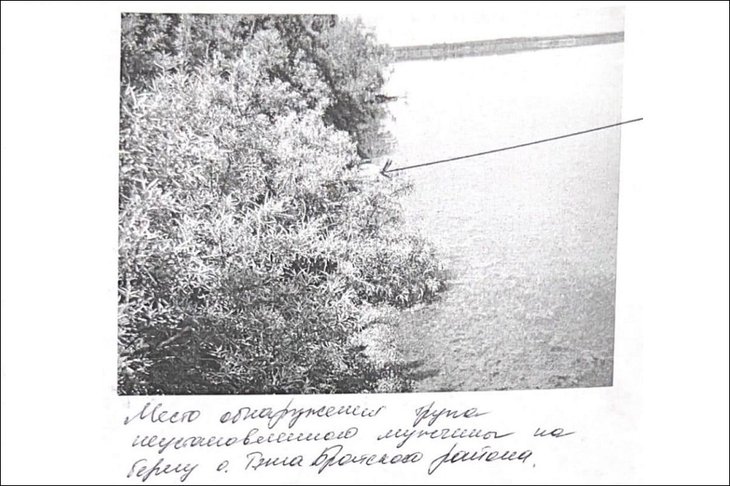 Место обнаружения трупа
неустановленного мужчины на
берегу о. Тэта Братского района.